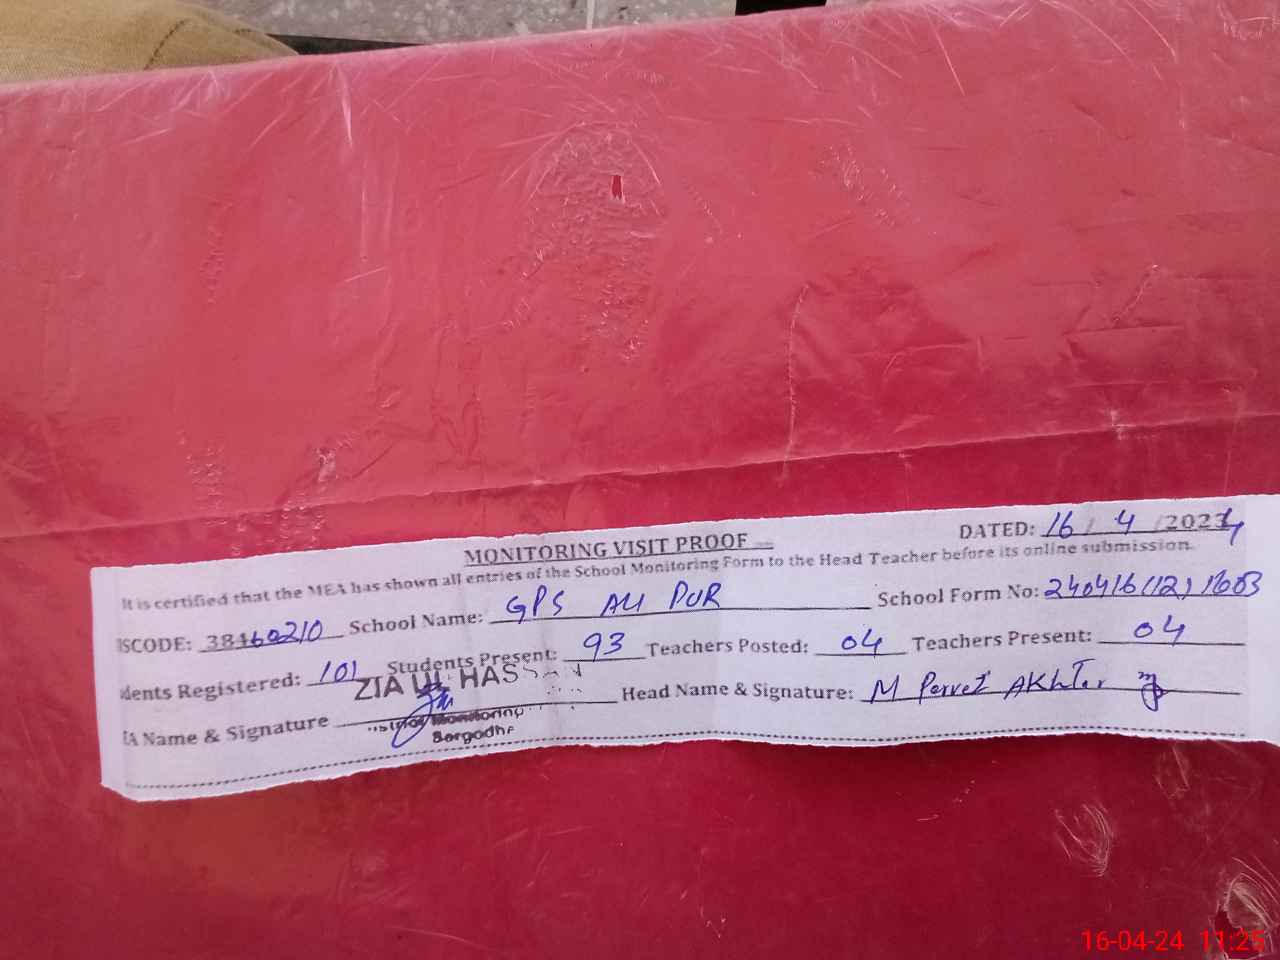 MONITORING VISIT PROOF
DATED: 16 / 4 /2024
It is certified that the MEA has shown all entries of the School Monitoring Form to the Head Teacher before its online submission.
ISCODE: 38460210 School Name: GPS ALI PUR School Form No: 240416(12)1603
dents Registered: 101 Students Present: 93 Teachers Posted: 04 Teachers Present: 04
ZIA UL HASSAN
EA Name & Signature Head Name & Signature: M Pervez AKhter
Monitoring
Sargodha
16-04-24 11:25